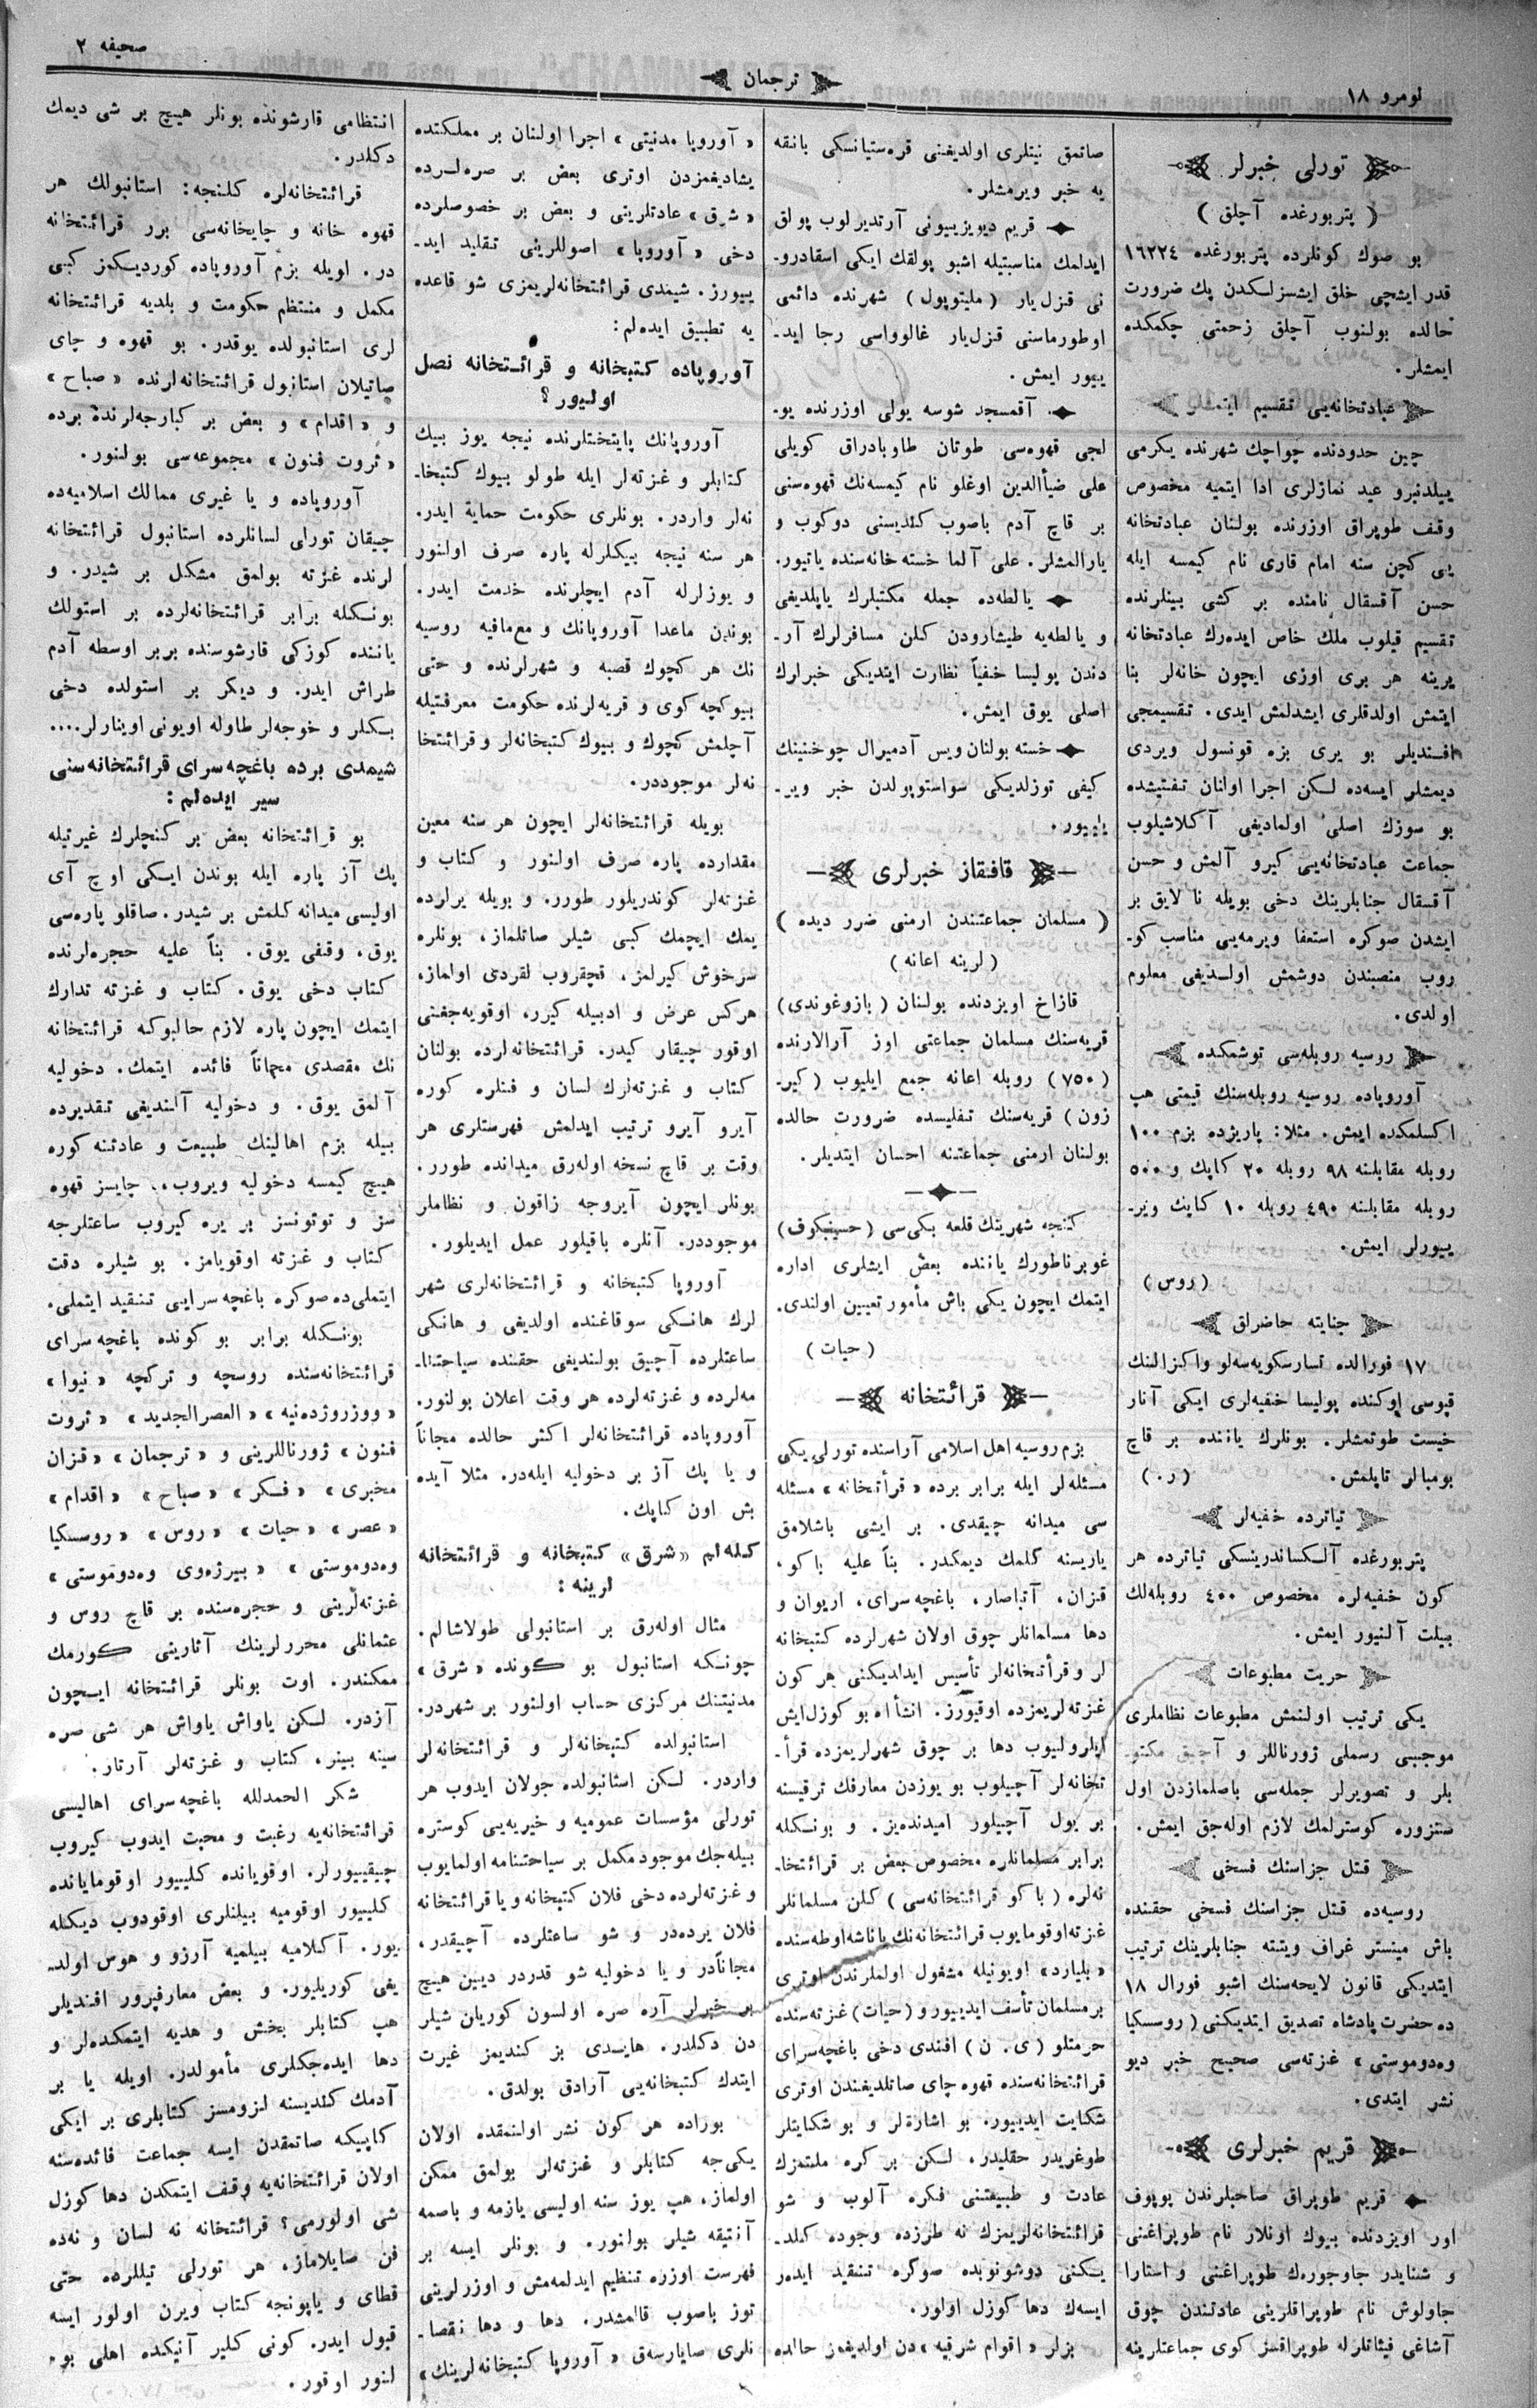 صحیفه ٢
ترجمان
نومرو ١٨
تورلی خبرلر
( پتربورغده آچلق )
بو صوك كونلرده پتربورغده ١٦٢٢٤
قدر ایشچی خلق ایشسزلكدن پك ضرورت
حالده بولنوب آچلق زحمتی چكمكده
ایمشلر.
عبادتخانه‌یی تقسیم ایتمشلر
چین حدودنده چواچك شهرنده یكرمی
ییلدنبرو عید نمازلری ادا ایتمیه مخصوص
وقف طوپراق اوزرنده بولنان عبادتخانه
یی كچن سنه امام قاری نام كیمسه ایله
حسن آقسقال نامنده بر كشی بینلرنده
تقسیم قیلوب ملك خاص ایده‌رك عبادتخانه
یرینه هر بری اوزی ایچون خانه‌لر بنا
ایتمش اولدقلری ایشدلمش ایدی. تقسیمجی
افندیلر بو یری بزه قونسول ویردی
دیمشلر ایسه‌ده لكن اجرا اولنان تفتیشده
بو سوزك اصلی اولمادیغی آكلاشیلوب
جماعت عبادتخانه‌یی كیرو آلمش و حسن
آقسقال جنابلرینك دخی بویله نا لایق بر
ایشدن صوكره استعفا ویرمه‌یی مناسب كو-
روب منصبندن دوشمش اولدیغی معلوم
اولدی.
روسیه روبله‌سی توشمكده
آوروپاده روسیه روبله‌سنك قیمتی هپ
اكسلمكده ایمش. مثلا: پاریژده بزم ١٠٠
روبله مقابلنه ٩٨ روبله ٢٠ كاپك و ٥٠٠
روبله مقابلنه ٤٩٠ روبله ١٠ كاپك ویر-
ییورلر ایمش.
(روس)
جنایته حاضرلق
١٧ فورالده تسارسكویه‌سه‌لو واكزالنك
قپوسی اوكنده پولیسا خفیه‌لری ایكی آنار
خیست طوتمشلر. بونلرك یاننده بر قاچ
بومبالر تاپلمش. (ر.)
تیاترده خفیه‌لر
پتربورغده آلكساندرینسكی تیاترده هر
كون خفیه‌لره مخصوص ٤٠٠ روبله‌لك
بیلت آلنیور ایمش.
حریت مطبوعات
یكی ترتیب اولنمش مطبوعات نظاملری
موجببی رسملی ژورناللر و آچیق مكتو-
بلر و تصویرلر جمله‌سی باصلمازدن اول
سنزوره كوسترلمك لازم اوله‌جق ایمش.
قتل جزاسنك فسخی
روسیه‌ده قتل جزاسنك فسخی حقنده
باش مینستر غراف ویتته جنابلرینك ترتیب
ایتدیكی قانون لایحه‌سنك اشبو فورال ١٨
ده حضرت پادشاه تصدیق ایتدیكنی (روسسكیا
وه‌دوموستی» غزته‌سی صحیح خبر دیو
نشر ایتدی.
قریم خبرلری
قریم طوپراق صاحبلرندن پوپوف
اور اویزدنده بیوك اونلار نام طوپراغنی
و شنایدر جاوجورەك طوپراغنی و استارا
جاولوش نام طوپراقلرینی عادتندن چوق
آشاغی فیئاتلرله طوپراقسز كوی جماعتلرینه
صاتمق نیتلری اولدیغنی قره‌ستیانسكی بانقه
یه خبر ویرمشلر.
قریم دیویزییونی آرتدیرلوب پولق
ایدلمك مناسبتیله اشبو پولقك ایكی اسقادرو-
نی قزل‌یار (ملیتوپول) شهرنده دائمی
اوطورماسنی قزل‌یار غالوواسی رجا اید-
ییور ایمش.
آقمسجد شوسه یولی اوزرنده یو-
لجی قهوه‌سی طوتان طاوبادراق كویلی
علی ضیأالدین اوغلو نام كیمسه‌نك قهوه‌سنی
بر قاچ آدم باصوب كندیسنی دوكوب و
یارالمشلر. علی آلما خسته خانه‌سنده یاتیور.
یالطه‌ده جمله مكتبلرك یاپلدیغی
و یالطه‌یه طیشارودن كلن مسافرلرك آر-
دندن پولیسا خفیاً نظارت ایتدیكی خبرلرك
اصلی یوق ایمش.
خسته بولنان ویس آدمیرال چوخنینك
كیفی توزلدیكی سواستوپولدن خبر ویر-
یلیور.
قافقاز خبرلری
( مسلمان جماعتندن ارمنی ضرر دیده )
( لرینه اعانه )
قازاخ اویزدنده بولنان (بازوغوندی)
قریه‌سنك مسلمان جماعتی اوز آرالارنده
(٧٥٠) روبله اعانه جمع ایلیوب (كیر-
زون) قریه‌سنك تفلیسده ضرورت حالده
بولنان ارمنی جماعتنه احسان ایتدیلر.
كنجه شهرینك قلعه بكی‌سی (حسینبكوف)
غوبرناطورك یاننده بعض ایشلری اداره
ایتمك ایچون یكی باش مأمور تعیین اولندی.
(حیات)
قرائتخانه
بزم روسیه اهل اسلامی آراسنده تورلی یكی
مسئله‌لر ایله برابر برده «قرأتخانه» مسئله
سی میدانه چیقدی. بر ایشی باشلامق
یاریسنه كلمك دیمكدر. بناً علیه باكو،
قزان، آتباصار، باغچه‌سرای، اریوان و
دها مسلمانلر چوق اولان شهرلرده كتبخانه
لر و قرأتخانه‌لر تأسیس ایدلدیكنی هر كون
غزته‌لریمزده اوقیورز. انشأاه بو كوزل ایش
ایلرولیوب دها بر چوق شهرلریمزده قرأ-
تخانه‌لر آچیلوب بو یوزدن معارفك ترقیسنه
بر یول آچیلور امیدنده‌یز. و بونكله
برابر مسلمانلره مخصوص بعض بر قرائتخا-
نه‌لره (باكو قرائتخانه‌سی) كلن مسلمانلر
غزته اوقومایوب قرائتخانه‌نك یاناشه اوطه‌سنده
«بلیارد» اویونیله مشغول اولملرندن اوتری
بر مسلمان تأسف ایدییور و (حیات) غزته‌سنده
حرمتلو (ی. ن) افندی دخی باغچه‌سرای
قرائتخانه‌سنده قهوه چای صاتلدیغندن اوتری
شكایت ایدییور. بو اشارەلر و بو شكایتلر
طوغریدر حقلیدر، لكن بر كره ملتمزك
عادت و طبیعتنی فكره آلوب و شو
قرائتخانه‌لریمزك نه طرزده وجوده كلد-
یكنی دوشونوبده صوكره تنقید ایدەر
ایسه‌ك دها كوزل اولور.
بزلر «اقوام شرقیه» دن اولدیغمز حالده
«آوروپا مدنیتی» اجرا اولنان بر مملكتده
یشادیغمزدن اوتری بعض بر صره‌لرده
«شرق» عادتلرینی و بعض بر خصوصلرده
دخی «آوروپا» اصوللرینی تقلید اید-
ییورز. شیمدی قرائتخانه‌لریمزی شو قاعده
یه تطبیق ایده‌لم:
آوروپاده كتبخانه و قرائتخانه نصل
اولیور؟
آوروپانك پایتختلرنده نیجه یوز بیك
كتابلر و غزته‌لر ایله طولو بیوك كتبخا-
نه‌لر واردر. بونلری حكومت حمایة ایدر.
هر سنه نیجه بیكلرله پاره صرف اولنور
و یوزلرله آدم ایچلرنده خدمت ایدر.
بوندن ماعدا آوروپانك و مع‌مافیه روسیه
نك هر كچوك قصبه و شهرلرنده و حتی
بیوكچه كوی و قریه‌لرنده حكومت معرفتیله
آچلمش كچوك و بیوك كتبخانه‌لر و قرائتخا
نه‌لر موجوددر.
بویله قرائتخانه‌لر ایچون هر سنه معین
مقدارده پاره صرف اولنور و كتاب و
غزته‌لر كوندریلور طورر. و بویله یرلرده
یمك ایچمك كبی شیلر صاتلماز، بونلره
سرخوش كیرلمز، قچقروب لقردی اولماز،
هركس عرض و ادبیله كیرر، اوقویه‌جغنی
اوقور چیقار كیدر. قرائتخانه‌لرده بولنان
كتاب و غزته‌لرك لسان و فنلره كوره
آیرو آیرو ترتیب ایدلمش فهرستلری هر
وقت بر قاچ نسخه اوله‌رق میدانده طورر.
بونلر ایچون آیروجه زاقون و نظاملر
موجوددر. آنلره باقیلور عمل ایدیلور.
آوروپا كتبخانه و قرائتخانه‌لری شهر
لرك هانكی سوقاغنده اولدیغی و هانكی
ساعتلرده آچیق بولندیغی حقنده سیاحتنا-
مه‌لرده و غزته‌لرده هر وقت اعلان بولنور.
آوروپاده قرائتخانه‌لر اكثر حالده مجاناً
و یا پك آز بر دخولیه ایله‌در. مثلا آیده
بش اون كاپك.
كله‌لم «شرق» كتبخانه و قرائتخانه
لرینه:
مثال اوله‌رق بر استانبولی طولاشالم.
چونكه استانبول بو كونده «شرق»
مدنیتنك مركزی حساب اولنور بر شهردر.
استانبولده كتبخانه‌لر و قرائتخانه‌لر
واردر. لكن استانبولده جولان ایدوب هر
تورلی مؤسسات عمومیه و خیریه‌یی كوستره
بیله‌جك موجود مكمل بر سیاحتنامه اولمایوب
و غزته‌لرده دخی فلان كتبخانه و یا قرائتخانه
فلان یرده‌در و شو ساعتلرده آچیقدر،
مجاناًدر و یا دخولیه شو قدردر دیین هیچ
بر خبرلر آره صره اولسون كوریلان شیلر
دن دكلدر. هایسدی بز كندیمز غیرت
ایتدك كتبخانه‌یی آرادق بولدق.
بوراده هر كون نشر اولنمقده اولان
یكی‌جه كتابلر و غزته‌لر بولمق ممكن
اولماز، هپ یوز سنه اولیسی یازمه و باصمه
آنتیقه شیلر بولنور. و بونلر ایسه بر
فهرست اوزره تنظیم ایدلمه‌مش و اوزرلرینی
توز باصوب قالمشدر. دها و دها نقصا-
نلری صایارسه‌ق «آوروپا كتبخانه‌لرینك»
انتظامی قارشونده بونلر هیچ بر شی دیمك
دكلدر.
قرائتخانه‌لره كلنجه: استانبولك هر
قهوه خانه و چایخانه‌سی برر قرائتخانه
در. اویله بزم آوروپاده كوردیكمز كبی
مكمل و منتظم حكومت و بلدیه قرائتخانه
لری استانبولده یوقدر. بو قهوه و چای
صاتیلان استانبول قرائتخانه‌لرنده «صباح»
و «اقدام» و بعض بر كبارجه‌لرنده برده
«ثروت فنون» مجموعه‌سی بولنور.
آوروپاده و یا غیری ممالك اسلامیه‌ده
چیقان تورلی لسانلرده استانبول قرائتخانه
لرنده غزته بولمق مشكل بر شیدر. و
بونكله برابر قرائتخانه‌لرده بر استولك
یاننده كوزكی قارشوسنده بربر اوسطه آدم
طراش ایدر. و دیكر بر استولده دخی
بكلر و خوجه‌لر طاوله اویونی اوینارلر....
شیمدی برده باغچه‌سرای قرائتخانه‌سنی
سیر ایده‌لم:
بو قرائتخانه بعض بر كنچلرك غیرتیله
پك آز پاره ایله بوندن ایكی اوچ آی
اولیسی میدانه كلمش بر شیدر. صاقلو پاره‌سی
یوق، وقفی یوق. بناً علیه حجره‌لرنده
كتاب دخی یوق. كتاب و غزته تدارك
ایتمك ایچون پاره لازم حالبوكه قرائتخانه
نك مقصدی مجاناً فائده ایتمك. دخولیه
آلمق یوق. و دخولیه آلندیغی تقدیرده
بیله بزم اهالینك طبیعت و عادتنه كوره
هیچ كیمسه دخولیه ویروب، چایسز قهوه
سز و توتونسز بر یره كیروب ساعتلرجه
كتاب و غزته اوقویامز. بو شیلره دقت
ایتملی‌ده صوكره باغچه‌سرایی تنقید ایتملی.
بونكله برابر بو كونده باغچه‌سرای
قرائتخانه‌سنده روسچه و تركچه «نیوا»
«ووزروژده‌نیه» «العصر الجدید» «ثروت
فنون» ژورناللرینی و «ترجمان» «قزان
مخبری» «فكر» «صباح» «اقدام»
«عصر» «حیات» «روس» «روسسكیا
وه‌دوموستی» «بیرژه‌وی وه‌دوموستی»
غزته‌لرینی و حجره‌سنده بر قاچ روس و
عثمانلی محررلرینك آثارینی كورمك
ممكندر. اوت بونلر قرائتخانه ایچون
آزدر. لكن یاواش یاواش هر شی صره
سینه بینر، كتاب و غزته‌لر آرتار.
شكر الحمدلله باغچه‌سرای اهالیسی
قرائتخانه‌یه رغبت و محبت ایدوب كیروب
چیقییورلر. اوقویانده كلییور اوقومایانده
كلییور اوقومیه بیلنلری اوقودوب دیكله
یور. آكلامیه بیلمیه آرزو و هوس اولد-
یغی كوریلیور. و بعض معارفپرور افندیلر
هپ كتابلر بخش و هدیه ایتمكده‌لر و
دها ایده‌جكلری مأمولدر. اویله یا بر
آدمك كندیسنه لزومسز كتابلری بر ایكی
كاپیكه صاتمقدن ایسه جماعت فائده‌سنه
اولان قرائتخانه‌یه وقف ایتمكدن دها كوزل
شی اولورمی؟ قرائتخانه نه لسان و نه‌ده
فن صایلاماز، هر تورلی تیللرده حتی
قطای و یاپونجه كتاب ویرن اولور ایسه
قبول ایدر. كونی كلیر آنیكده اهلی بو-
لنور اوقور.